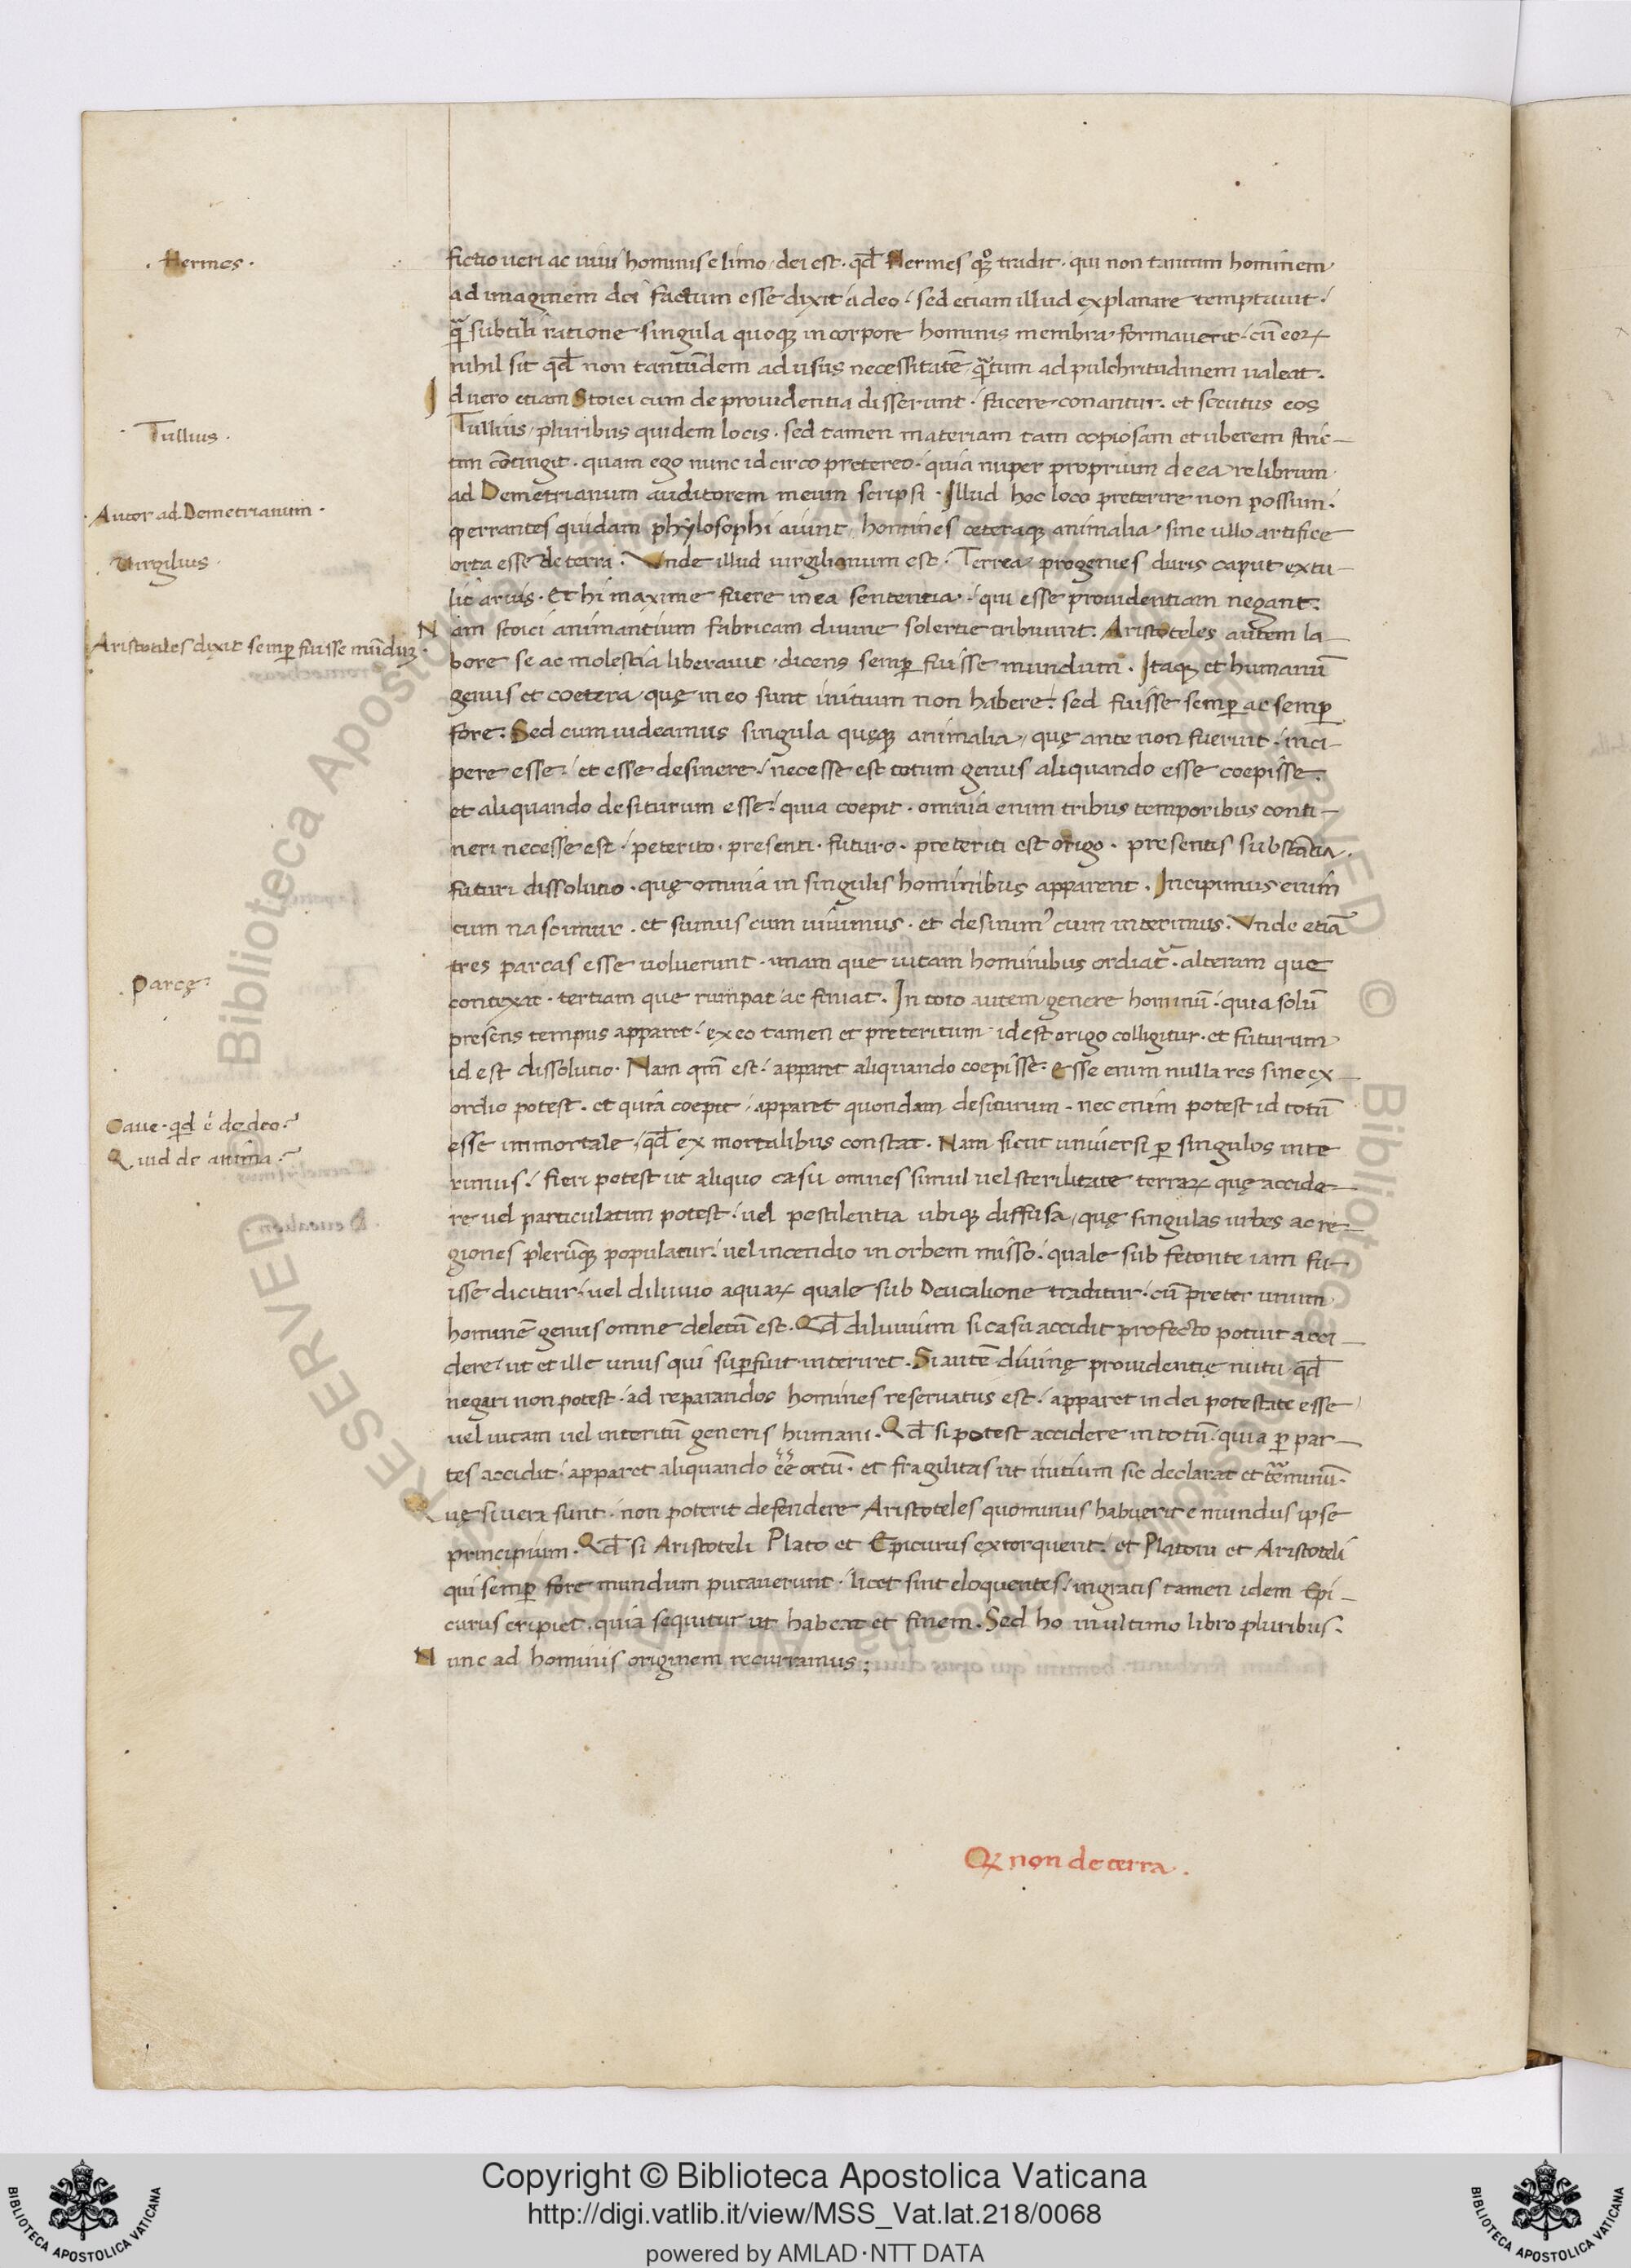 .Hermes.
fictio ueri ac uiui hominis e limo dei est. qđ Hermes qͦꝫ tradit. qui non tantum hominem
ad imaginem dei factum esse dixit a deo. sed etiam illud explanare temptauit.
q̃ subtili ratione singula quoqꝫ in corpore hominis membra formauerit. cũ eoꝝ
nihil sit qđ non tantũdem ad usus necessitatẽ q̃tum ad pulchritudinem ualeat.
Id uero etiam Stoici cum de prouidentia disserunt. facere conantur. et secutus eos
Tullius.
Tullius pluribus quidem locis. sed tamen materiam tam copiosam et uberem stric-
tim cõtingit. quam ego nunc idcirco pretereo. quia nuper proprium de ea re librum
.Autor ad Demetrianum.
ad Demetrianum auditorem meum scripsi. Illud hoc loco preterire non possum.
ꝙ errantes quidam phylosophi aiunt homines ceteraqꝫ animalia sine ullo artifice
.Virgilius.
orta esse de terra. Vnde illud uirgilianum est. Terrea progenies duris caput extu-
lit aruis. Et hi maxime fuere in ea sententia. qui esse prouidentiam negant.
Aristotiles dixit semp̱ fuisse mũduꝫ.
Nam stoici animantium fabricam diuine solertie tribuunt. Aristoteles autem la-
bore se ac molestia liberauit. dicens semp̱ fuisse mundum. Itaqꝫ et humanũ
genus et coetera quę in eo sunt initium non habere. sed fuisse semp̱ ac semp̱
fore. Sed cum uideamus singula quęqꝫ animalia quę ante non fuerint. inci-
pere esse. et esse desinere. necesse est totum genus aliquando esse coepisse.
et aliquando desiturum esse. quia coepit. omnia enim tribus temporibus conti-
neri necesse est. peterito. presenti. futuro. preteriti est origo. presentis substãtia.
futuri dissolutio. quę omnia in singulis hominibus apparent. Incipimus enim
cum nascimur. et sumus cum uiuimus. et desinimꝰ cum interimus. Vnde etiã
.Parcę.
tres parcas esse uoluerunt. unam que uitam hominibus ordiat̃. alteram que
contexat. tertiam que rumpat ac finiat. In toto autem genere hominũ. quia solũ
presens tempus apparet. ex eo tamen et preteritum id est origo colligitur. et futurum
id est dissolutio. Nam qm̃ est. apparet aliquando coepisse. Esse enim nulla res sine ex-
ordio potest. et quia coepit. apparet quondam desiturum. nec enim potest id totũ
Caue. qđ ẽ de deo.
Quid de anima.
esse immortale. qđ ex mortalibus constat. Nam sicut uniuersi p̱ singulos inte
rimus. fieri potest ut aliquo casu omnes simul uel sterilitate terraꝝ quę accide-
re uel particulatim potest. uel pestilentia ubiqꝫ diffusa quę singulas urbes ac re-
giones plerũqꝫ populatur. uel incendio in orbem misso. quale sub fetonte iam fu-
isse dicitur. uel diluuio aquaꝝ quale sub Deucalione traditur. cũ preter unum
hominẽ genus omne deletũ est. Qđ diluuium si casu accidit profecto potuit acci-
dere ut et ille unus qui sup̱fuit interiret. Si autẽ diuinę prouidentię nutu qđ
negari non potest. ad reparandos homines reseruatus est. apparet in dei potestate esse
uel uitam uel interitũ generis humani. Qđ si potest accidere in totũ. quia p̱ par-
tes accidit. apparet aliquando ẽe ortũ. et fragilitas ut initium sic declarat et t̃minũ.
Quę si uera sunt. non poterit defendere Aristoteles quominus habuerit e mundus ipse
principium. Qđ si Aristoteli Plato et Epicurus extorquent. et Platoni et Aristoteli
qui semp̱ fore mundum putauerunt. licet sint eloquentes. ingratis tamen idem Epi-
curus eripiet. quia sequitur ut habeat et finem. Sed ho in ultimo libro pluribus.
Nunc ad hominis originem recurramus;
Qꝝ non de terra.
Copyright © Biblioteca Apostolica Vaticana
http://digi.vatlib.it/view/MSS_Vat.lat.218/0068
powered by AMLAD·NTT DATA
BIBLIOTECA APOSTOLICA VATICANA
BIBLIOTECA APOSTOLICA VATICANA